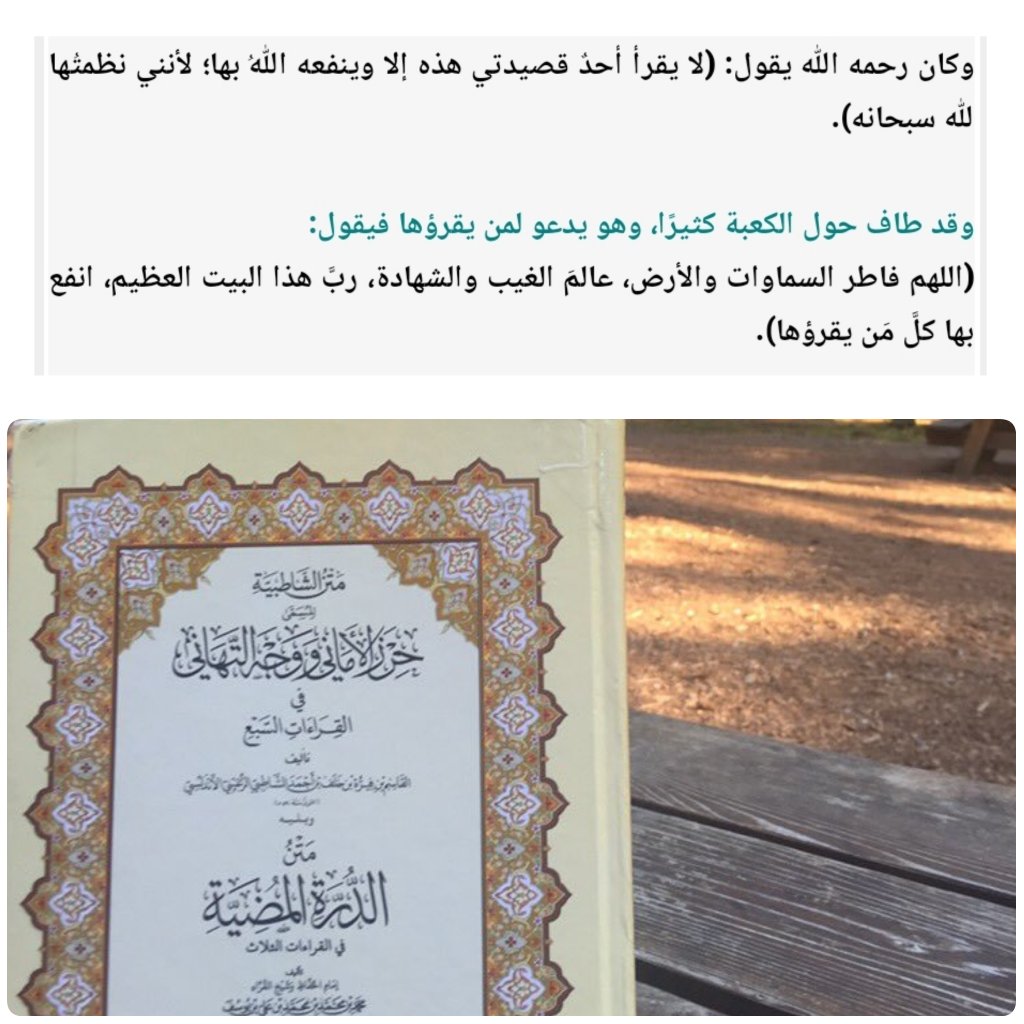 وكان رحمه الله يقول: (لا يقرأ أحدٌ قصيدتي هذه إلا وينفعه اللهُ بها؛ لأنني نظمتُها
لله سبحانه).
وقد طاف حول الكعبة كثيرًا، وهو يدعو لمن يقرؤها فيقول:
(اللهم فاطر السماوات والأرض، عالمَ الغيب والشهادة، ربَّ هذا البيت العظيم، انفع
بها كلَّ مَن يقرؤها).
مَتْنُ الشَّاطِبِيَّةِ
المُسَمَّى
حِرْزَ الأَمَانِي وَوَجْهَ التَّهَانِي
فِي
القِرَاءَاتِ السَّبْعِ
تأليف
القاسم بن فيرة بن خلف بن أحمد الشاطبي الرعيني الأندلسي
ويليه
مَتْنُ
الدُّرَّةِ المُضِيَّةِ
في القراءات الثلاث
تأليف
إمام الحفاظ وشيخ القراء
محمد بن محمد بن محمد بن علي بن يوسف